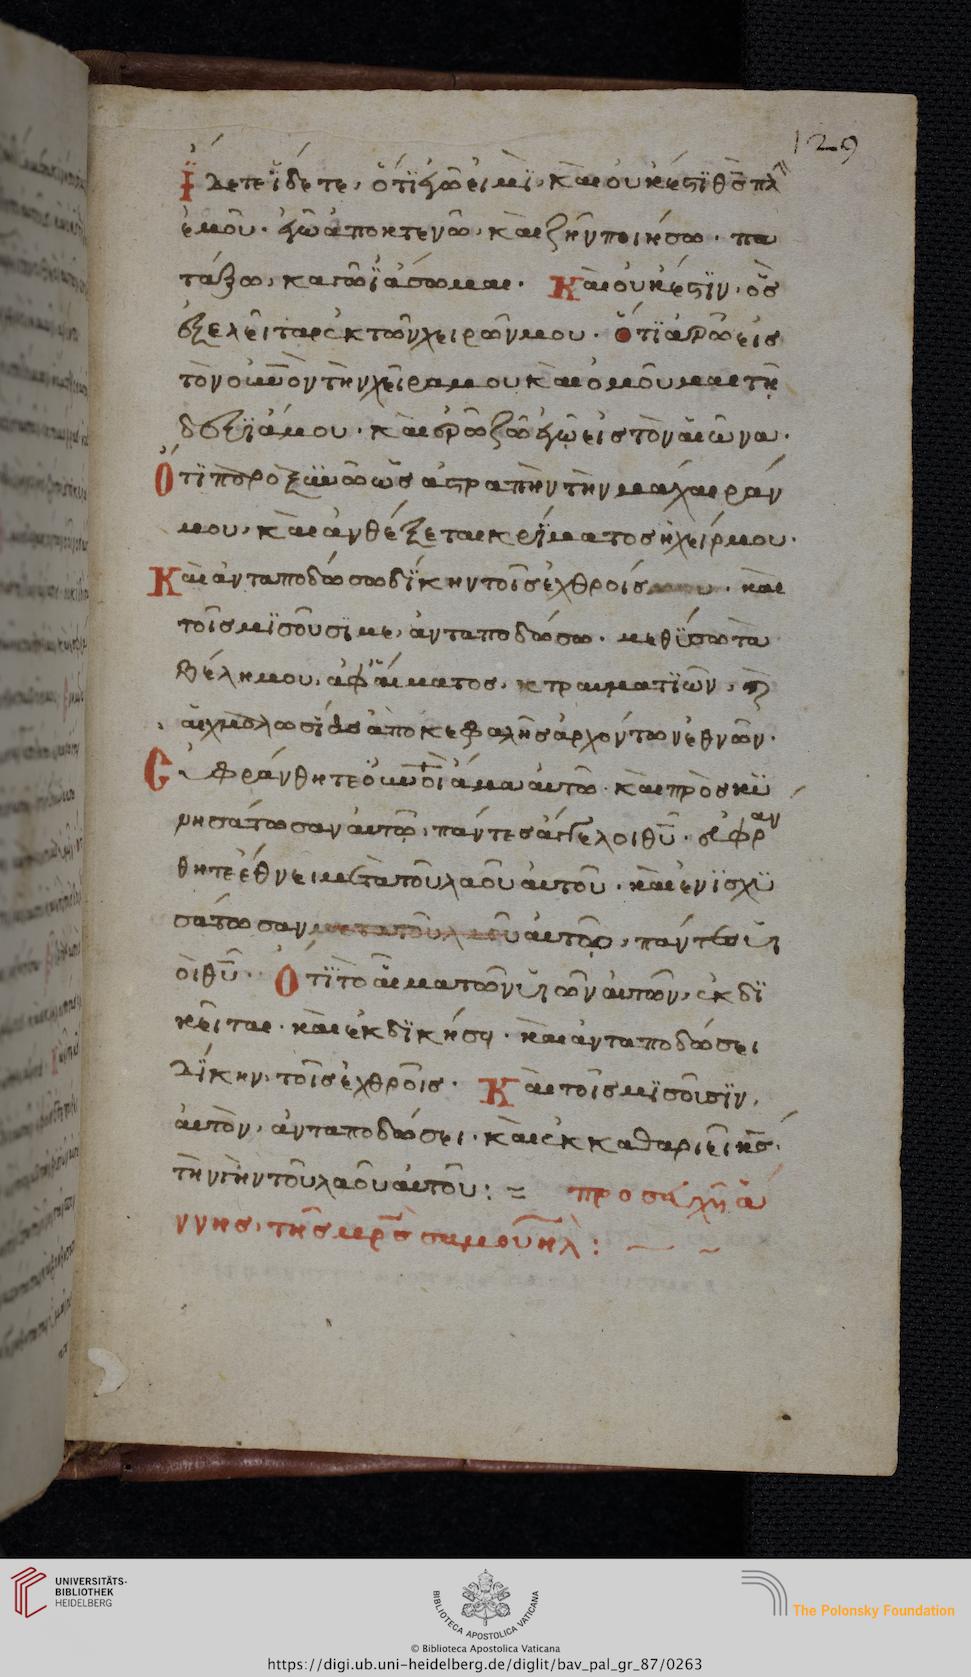 129
Ἴδετε ἴδετε, ὅτι ἐγώ εἰμι, καὶ οὐκ ἔστι θς πλ
ἐμοῦ. ἐγὼ ἀποκτενῶ, καὶ ζῆν ποιήσω. πα
τάξω, καγὼ ἰάσωμαι. Καὶ οὐκ ἔστιν, ὃς
ἐξελεῖται ἐκ τῶν χειρῶν μου. Ὅτι ἀρῶ εἰς
τὸν οὐνον τὴν χεῖρα μου καὶ ὀμοῦμαι τῆ
δεξιά μου. καὶ ἐρῶ ζῶ ἐγὼ εἰς τὸν αἰῶνα.
Ὅτι παροξυνῶ ὡς ἀστραπὴν τὴν μάχαιράν
μου, καὶ ἀνθέξεται κρίματος ἡ χείρ μου.
Καὶ ἀνταποδώσω δίκην τοῖς ἐχθροῖς μου. καὶ
τοῖς μισοῦσί με, ἀνταποδώσω. μεθύσω τὰ
βέλη μου, ἀφ' αἵματος, κ τραυματιῶν, κ
αἰχμαλωσίας ἀπὸ κεφαλῆς ἀρχόντων ἐθνῶν.
Εὐφράνθητε οὐνοὶ ἅμα αὐτῶ. καὶ προσκυ
νησάτωσαν αὐτῶ, πάντες ἄγγελοι θυ. εὐφραν
θητε ἔθνει μετὰ τοῦ λαοῦ αὐτοῦ. καὶ ἐνισχυ
σάτωσαν μετὰ τοῦ λαοῦ αὐτῶ, πάντες υἱ
οὶ θυ. Ὅτι τὸ αἷμα τῶν υἱῶν αὐτῶν, ἐκδι
κεῖται. καὶ ἐκδικήση. καὶ ἀνταποδώσει
δίκην, τοῖς ἐχθροῖς. Καὶ τοῖς μισοῦσιν,
αὐτὸν, ἀνταποδώσει. καὶ ἐκκαθαριεῖ κς.
τὴν γῆν τοῦ λαοῦ αὐτοῦ:
προσευχὴ ἄ
ννης, τῆς μρς σαμουήλ:
UNIVERSITÄTS-
BIBLIOTHEK
HEIDELBERG
BIBLIOTECA APOSTOLICA VATICANA
The Polonsky Foundation
© Biblioteca Apostolica Vaticana
https://digi.ub.uni-heidelberg.de/diglit/bav_pal_gr_87/0263